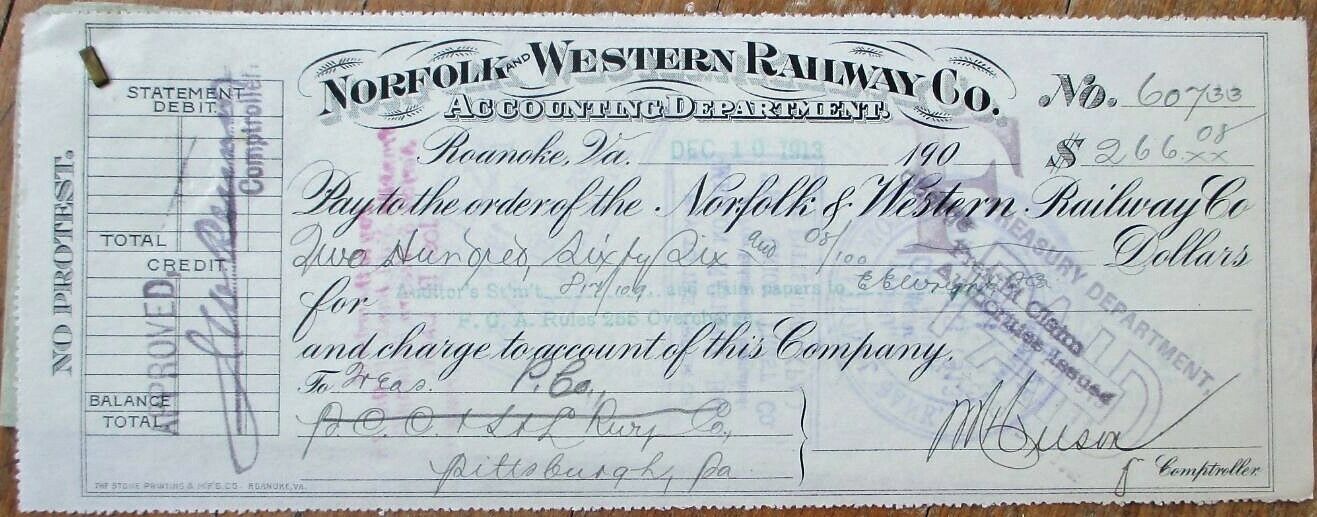 NORFOLK AND WESTERN RAILWAY CO.
ACCOUNTING DEPARTMENT.
No. 60733
Roanoke, Va. DEC 10 1913 190
$ 266.08
xx
Pay to the order of the Norfolk & Western Railway Co
Two Hundred, Sixty Six and 08/100 Dollars
Auditor's St'm't and claim papers to
for
F. C. A. Rules 265 Overcharge
and charge to account of this Company.
To Treas. P. Co.,
P. C. C. & St L Rwy Co.,
Pittsburgh, Pa
Comptroller
NO PROTEST.
STATEMENT
DEBIT
TOTAL
CREDIT
BALANCE
TOTAL
APPROVED,
Comptroller.
TREASURY DEPARTMENT.
PAID
Freight Claim
THE STONE PRINTING & M'F'G CO - ROANOKE, VA.